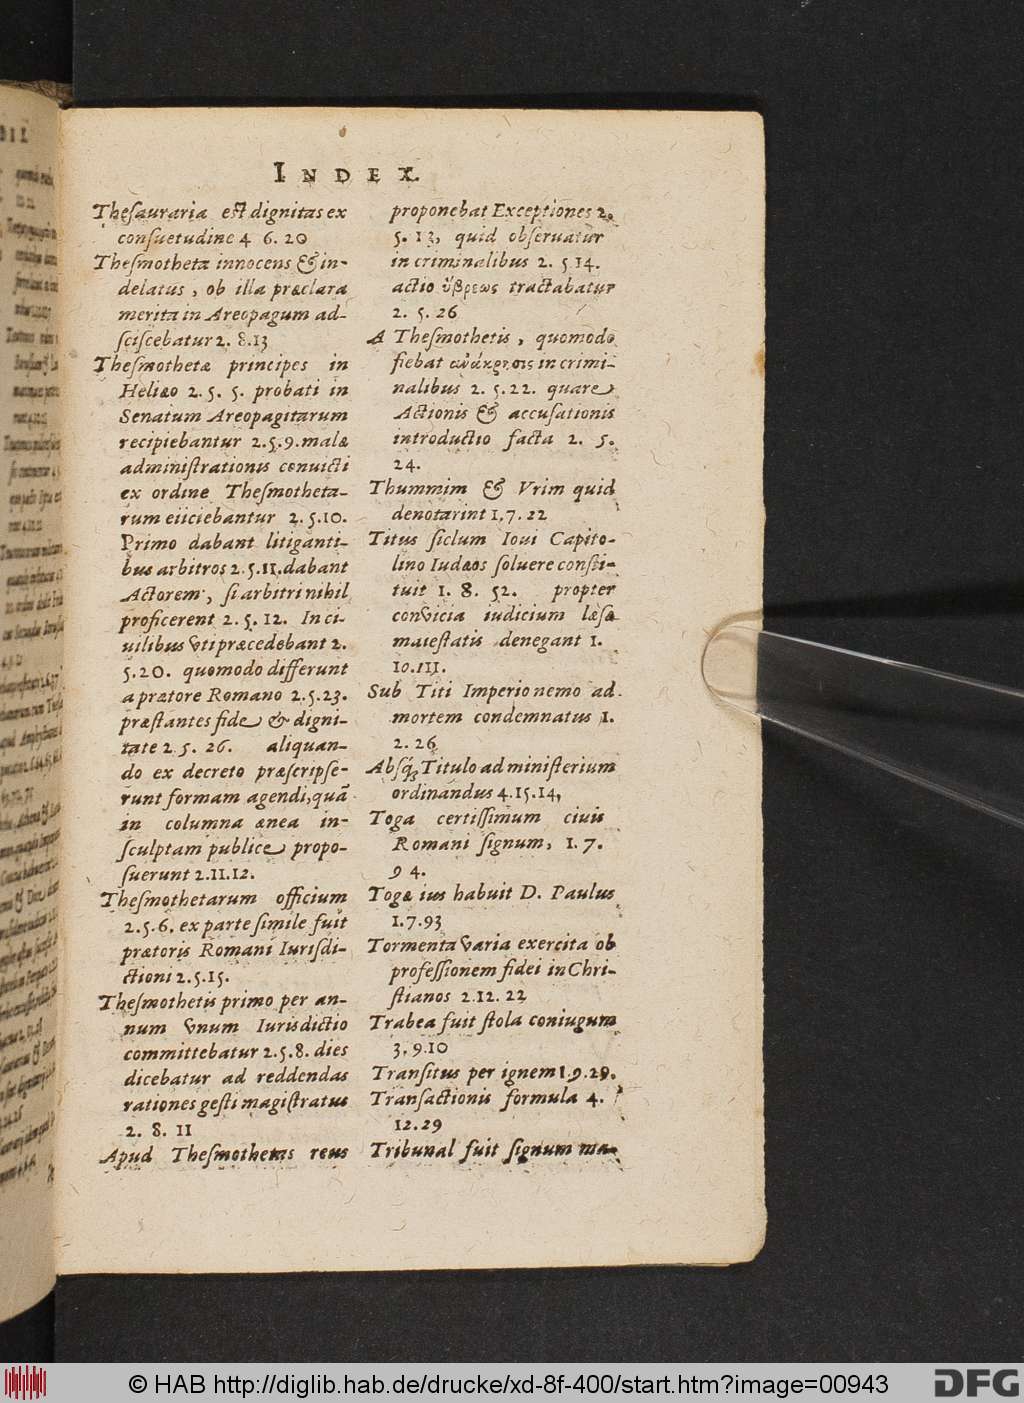 INDEX.
Thesauraria est dignitas ex
consuetudine 4 6. 20
Thesmotheta innocens & in-
delatus, ob illa præclara
merita in Areopagum ad-
sciscebatur 2. 8.13
Thesmothetæ principes in
Heliæo 2. 5. 5. probati in
Senatum Areopagitarum
recipiebantur 2.5.9. malæ
administrationis convicti
ex ordine Thesmotheta-
rum eiiciebantur 2.5.10.
Primo dabant litiganti-
bus arbitros 2.5.11. dabant
Actorem, si arbitri nihil
proficerent 2. 5. 12. In ci-
uilibus vti præcedebant 2.
5.20. quomodo differunt
a prætore Romano 2.5.23.
præstantes fide & digni-
tate 2 5. 26. aliquan-
do ex decreto præscripse-
runt formam agendi, quã
in columna ænea in-
sculptam publice propo-
suerunt 2.11.12.
Thesmothetarum officium
2.5.6. ex parte simile fuit
prætoris Romani Iurisdi-
ctioni 2.5.15.
Thesmothetis primo per an-
num vnum Iurisdictio
committebatur 2.5.8. dies
dicebatur ad reddendas
rationes gesti magistratus
2. 8. 11
Apud Thesmothetas reus
proponebat Exceptiones 2.
5. 13, quid obseruatur
in criminalibus 2. 5 14.
actio ὕβρεως tractabatur
2. 5. 26
A Thesmothetis, quomodo
fiebat in crimi-
nalibus 2. 5.22. quare
Actionis & accusationis
introductio facta 2. 5.
24.
Thummim & Vrim quid
denotarint 1.7.22
Titus siclum Ioui Capito-
lino Iudæos soluere consti-
tuit 1. 8. 52. propter
convicia iudicium læsæ
maiestatis denegant 1.
10.111.
Sub Titi Imperio nemo ad
mortem condemnatus 1.
2. 26
Absq; Titulo ad ministerium
ordinandus 4.15.14,
Toga certissimum ciuis
Romani signum, 1. 7.
94.
Togæ ius habuit D. Paulus
1.7.93
Tormenta varia exercita ob
professionem fidei in Chri-
stianos 2.12. 22
Trabea fuit stola coniugum
3, 9.10
Transitus per ignem 1.9.29.
Transactionis formula 4.
12.29
Tribunal fuit signum ma-
© HAB http://diglib.hab.de/drucke/xd-8f-400/start.htm?image=00943
DFG